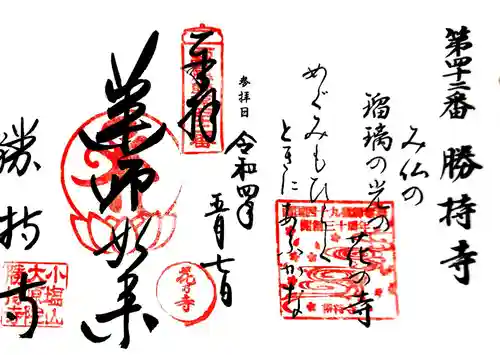 第四十二番 勝持寺
み仏の
瑠璃の光の花の寺
めぐみもひらく
ときにあふかな
参拝日
令和四年
五月七日
奉拝
薬師如来
勝持寺
花の寺
小塩山
大原院
勝持寺